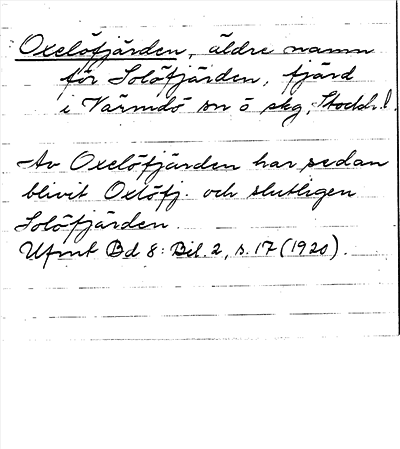 Oxelöfjärden, äldre namn
för Solöfjärden, fjärd
i Värmdö sn o skg, Stockh. l.
Av Oxelöfjärden har sedan
blivit Oxlöfj. och slutligen
Solöfjärden.
Ufmt Bd 8: Bil. 2, s. 17 (1920).